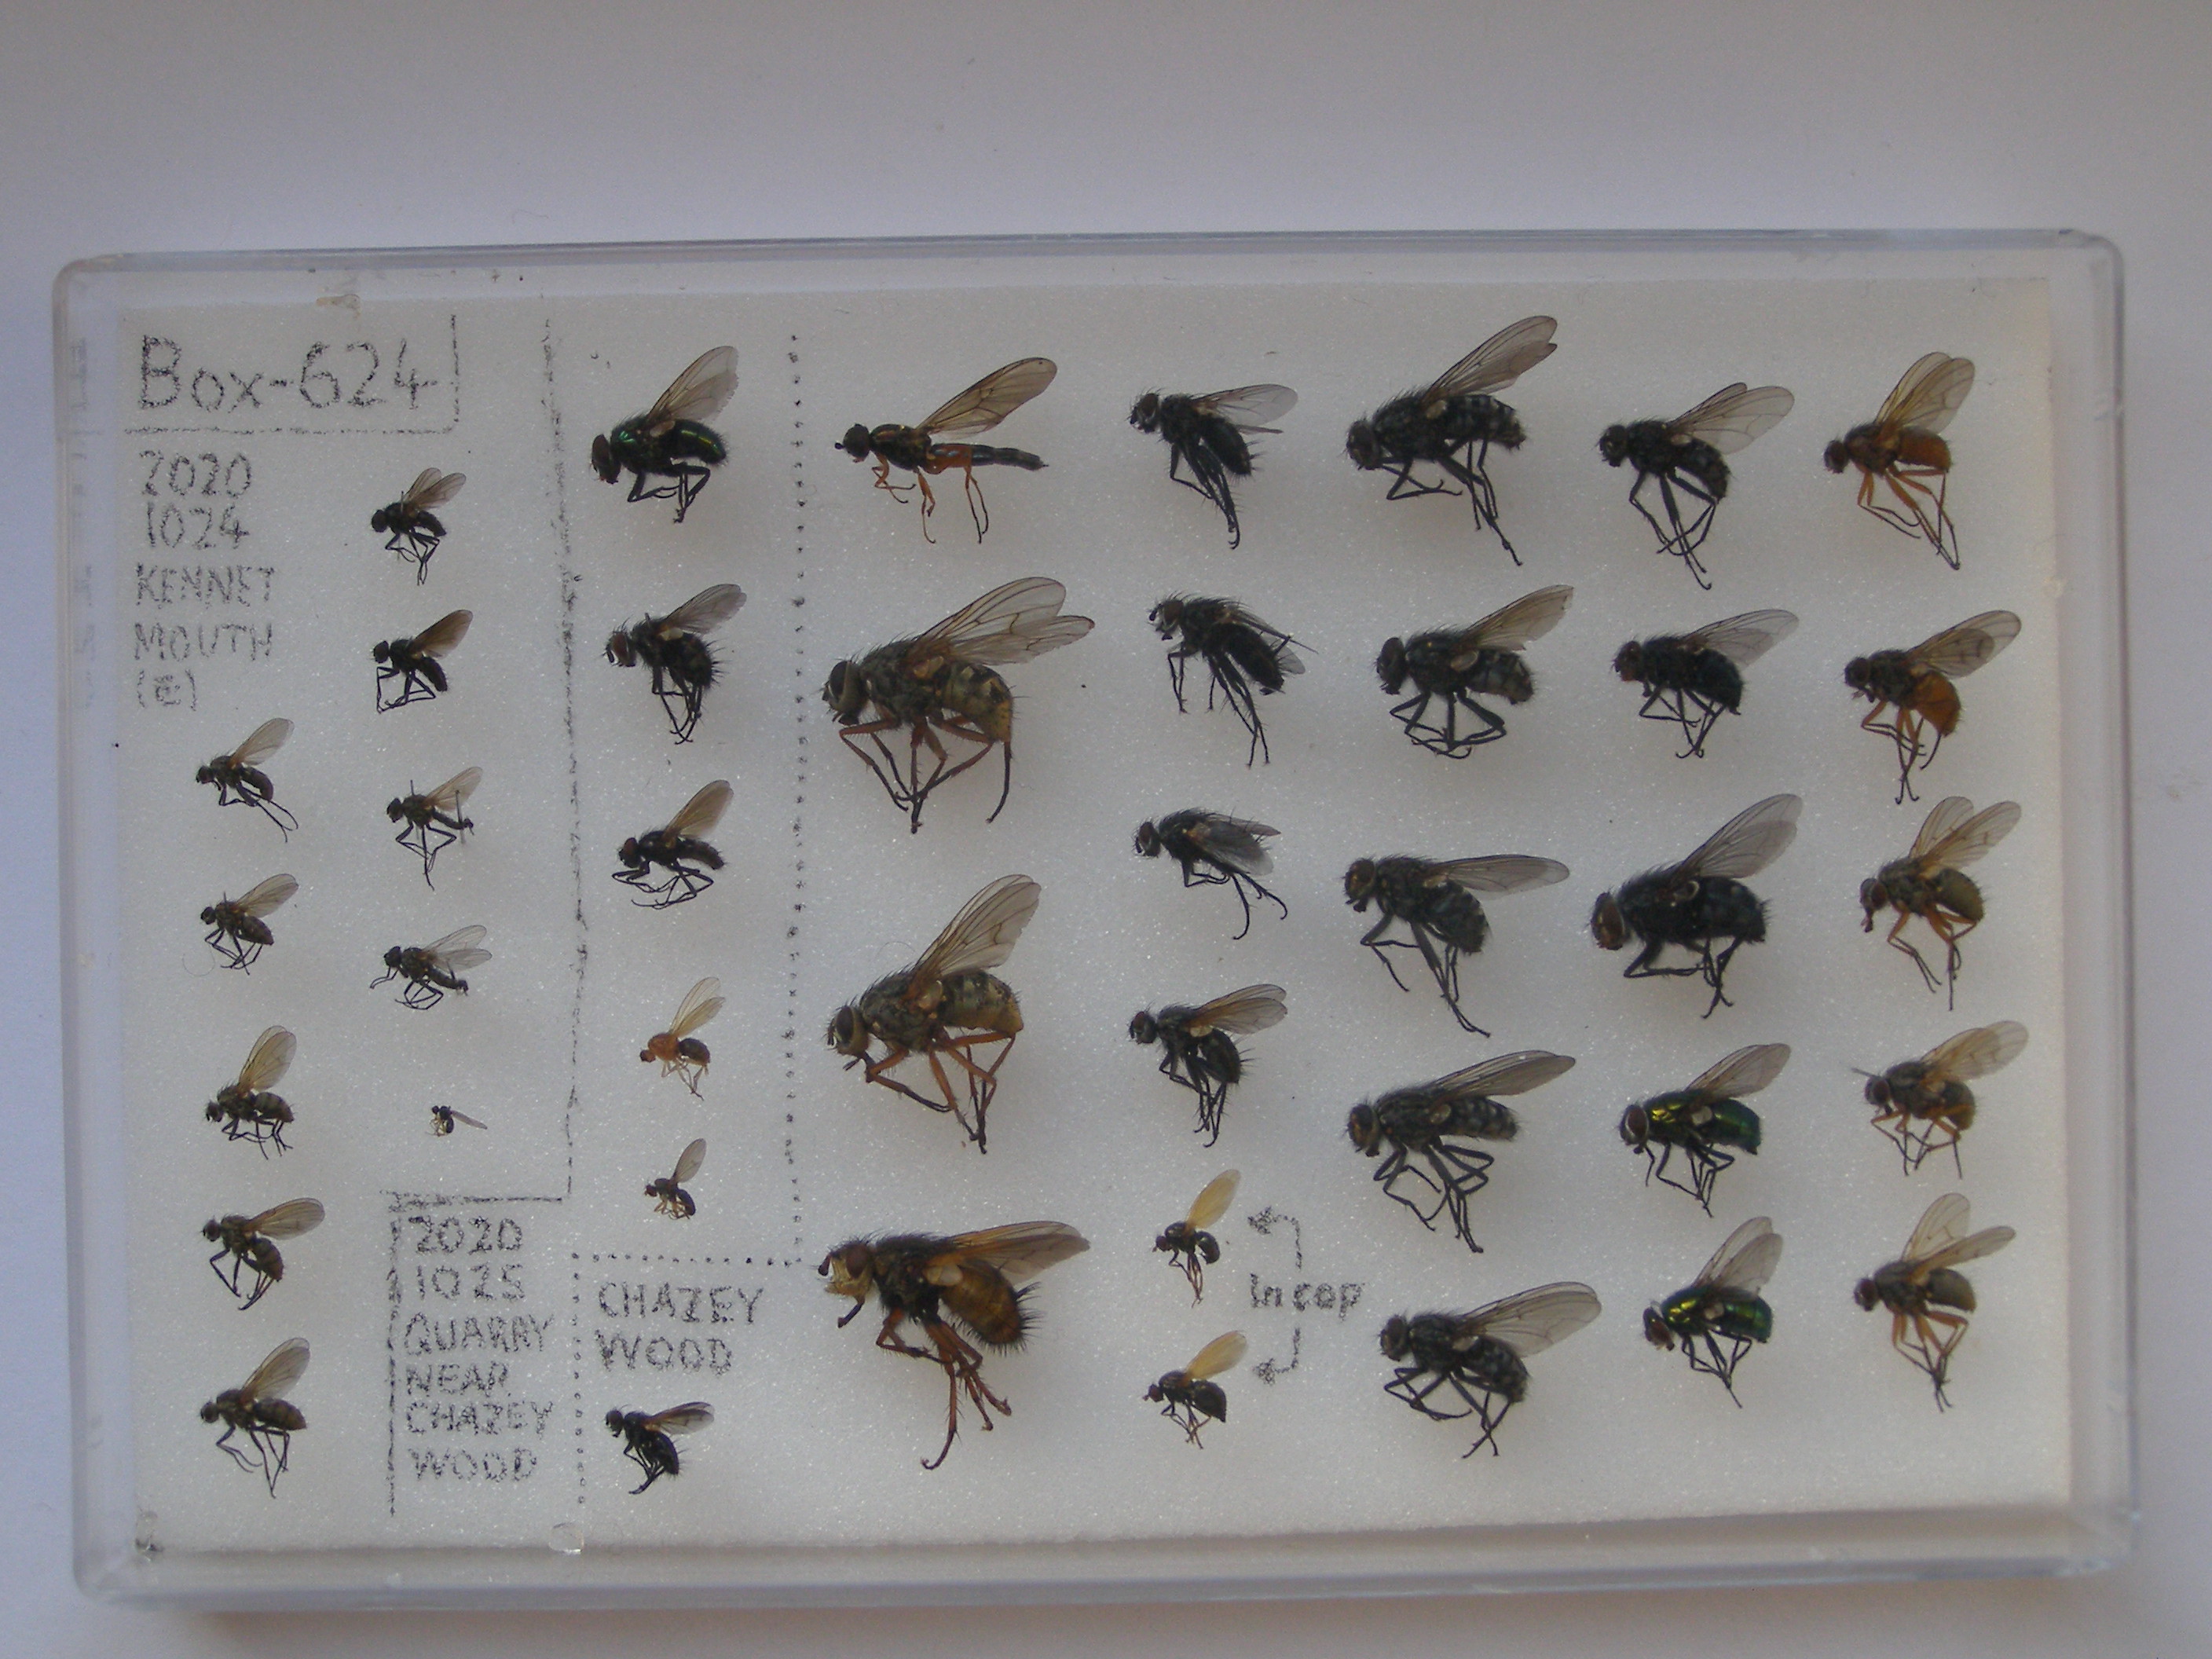 Box-624
2020
1024
KENNET
MOUTH
(E)
2020
1025
QUARRY
NEAR
CHAZEY
WOOD
CHAZEY
WOOD
In cop